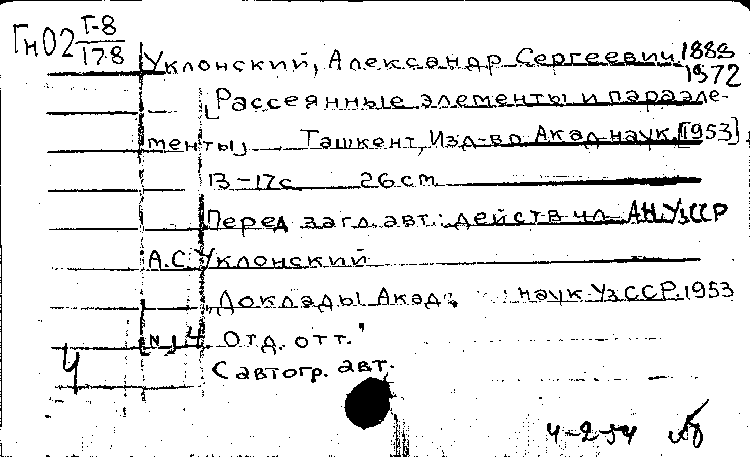 Гн02 Г-8
178
Уклонский, Александр Сергеевич 1888
1972
[Рассеянные элементы и параэле-
менты] Ташкент, Изд-во Акад наук, [1953]
13-17 с 26 cm
Перед загл. авт.: действ чл АН УзССР
А.С. Уклонский
"Доклады Акад. наук УзССР. 1953
[N] 4 Отд. отт."
4
С автогр. авт.
4-2-54